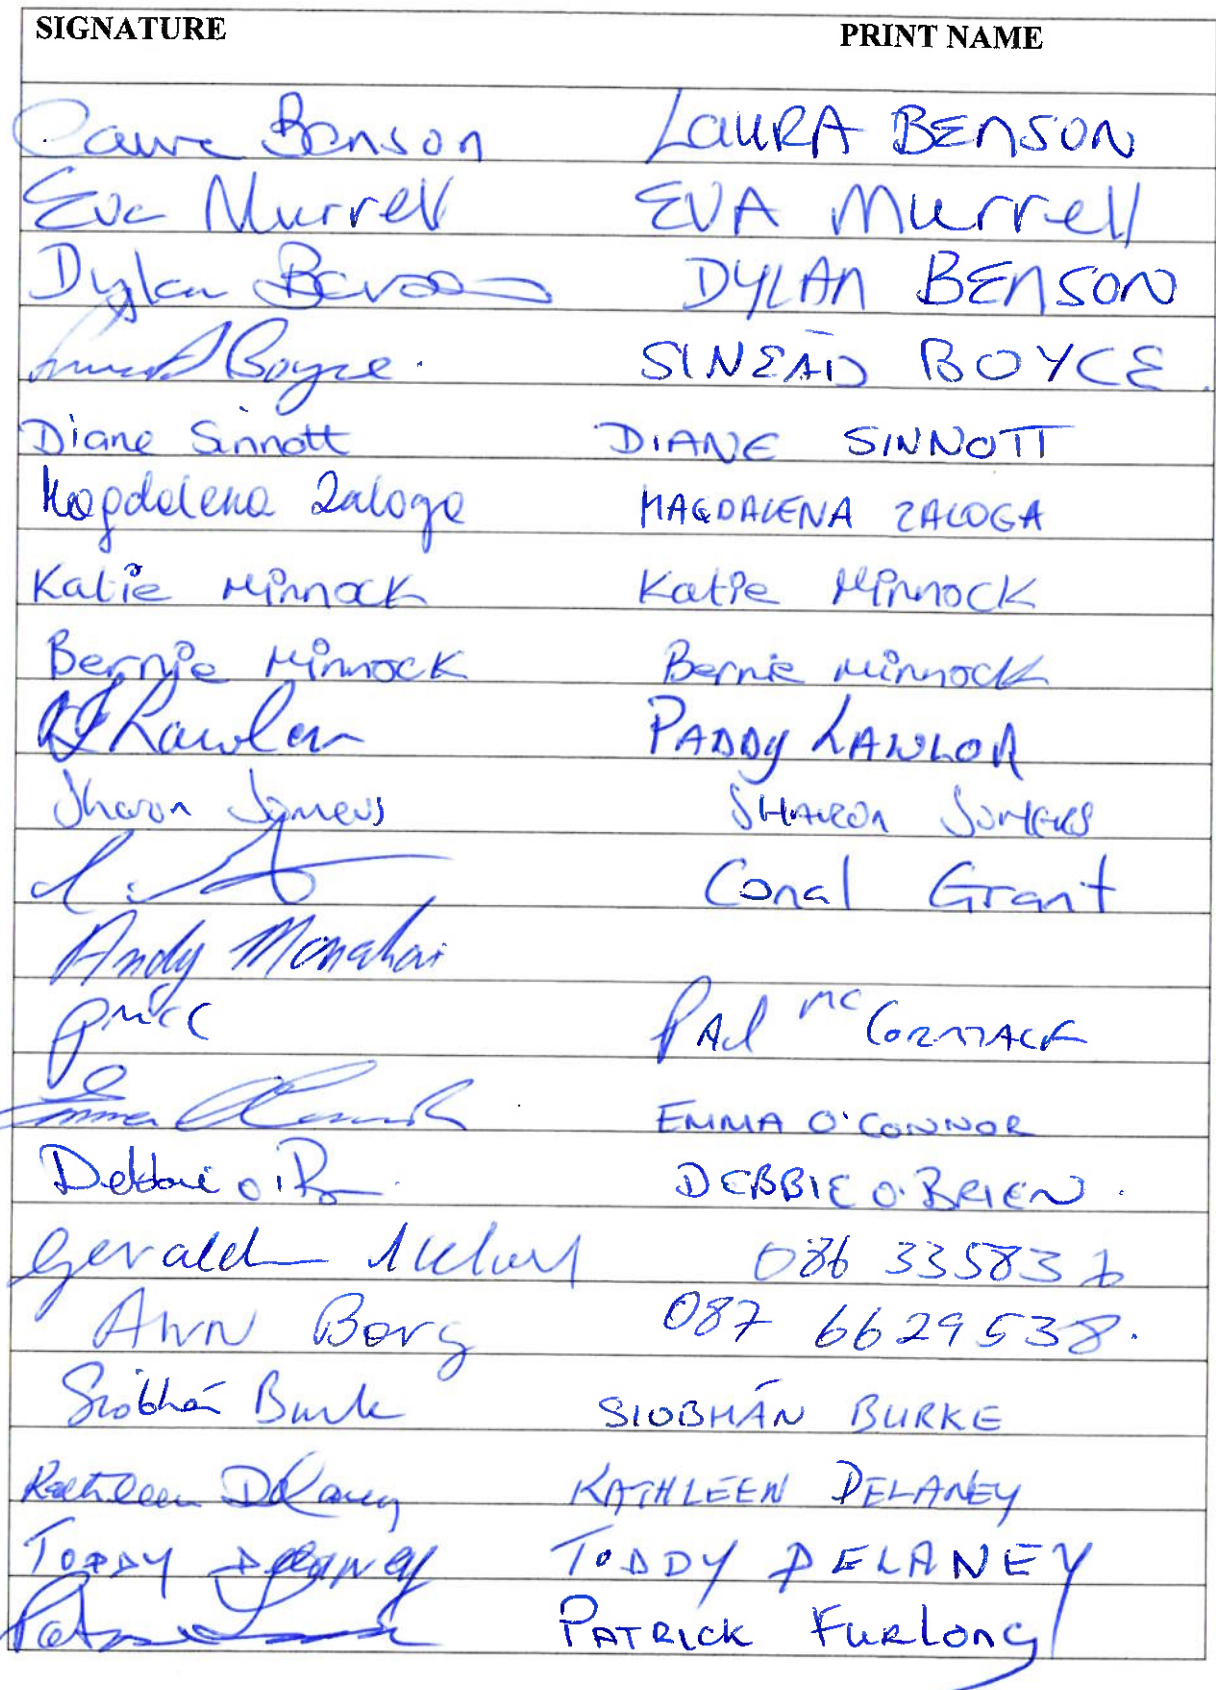 SIGNATURE PRINT NAME
Laura Benson LAURA BENSON
Eva Murrell EVA Murrell
Dylan Benson DYLAN BENSON
Sinead Boyce. SINEÁD BOYCE.
Diane Sinnott DIANE SINNOTT
Magdalena Zaloga MAGDALENA ZALOGA
Katie Minnock Katie Minnock
Bernie Minnock Bernie Minnock
Lawlor PADDY LAWLOR
Sharon Somers SHARON SOMERS
Conal Grant
Andy Monahan
PMcC PAUL McCORMACK
Emma O'Connor EMMA O'CONNOR
Debbie O'B DEBBIE O'BRIEN.
086 335836
Ann Borg 087 6629538.
Siobhán Burke SIOBHÁN BURKE
Kathleen Delaney KATHLEEN DELANEY
TODDY DELANEY TODDY DELANEY
PATRICK FURLONG